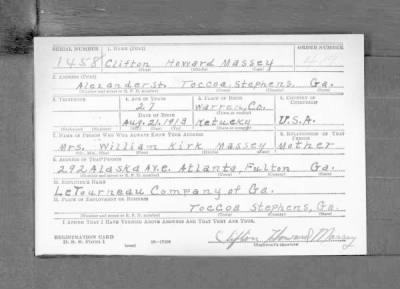 SERIAL NUMBER 1. NAME (Print) ORDER NUMBER
1458 Clifton Howard Massey
2. ADDRESS (Print)
Alexander st. Toccoa Stephens, Ga.
3. TELEPHONE 4. AGE IN YEARS 5. PLACE OF BIRTH 6. COUNTRY OF CITIZENSHIP
27 Warren, Co.
DATE OF BIRTH
Aug. 21, 1913 Ketucky U.S.A.
7. NAME OF PERSON WHO WILL ALWAYS KNOW YOUR ADDRESS 8. RELATIONSHIP OF THAT PERSON
Mrs. William Kirk Massey Mother
9. ADDRESS OF THAT PERSON
292 Alaska Ave. Atlanta, Fulton Ga.
10. EMPLOYER'S NAME
LeTourneau Company of Ga.
11. PLACE OF EMPLOYMENT OR BUSINESS
Toccoa Stephens, Ga.
I AFFIRM THAT I HAVE VERIFIED ABOVE ANSWERS AND THAT THEY ARE TRUE.
REGISTRATION CARD
D. S. S. Form 1
Clifton Howard Massey